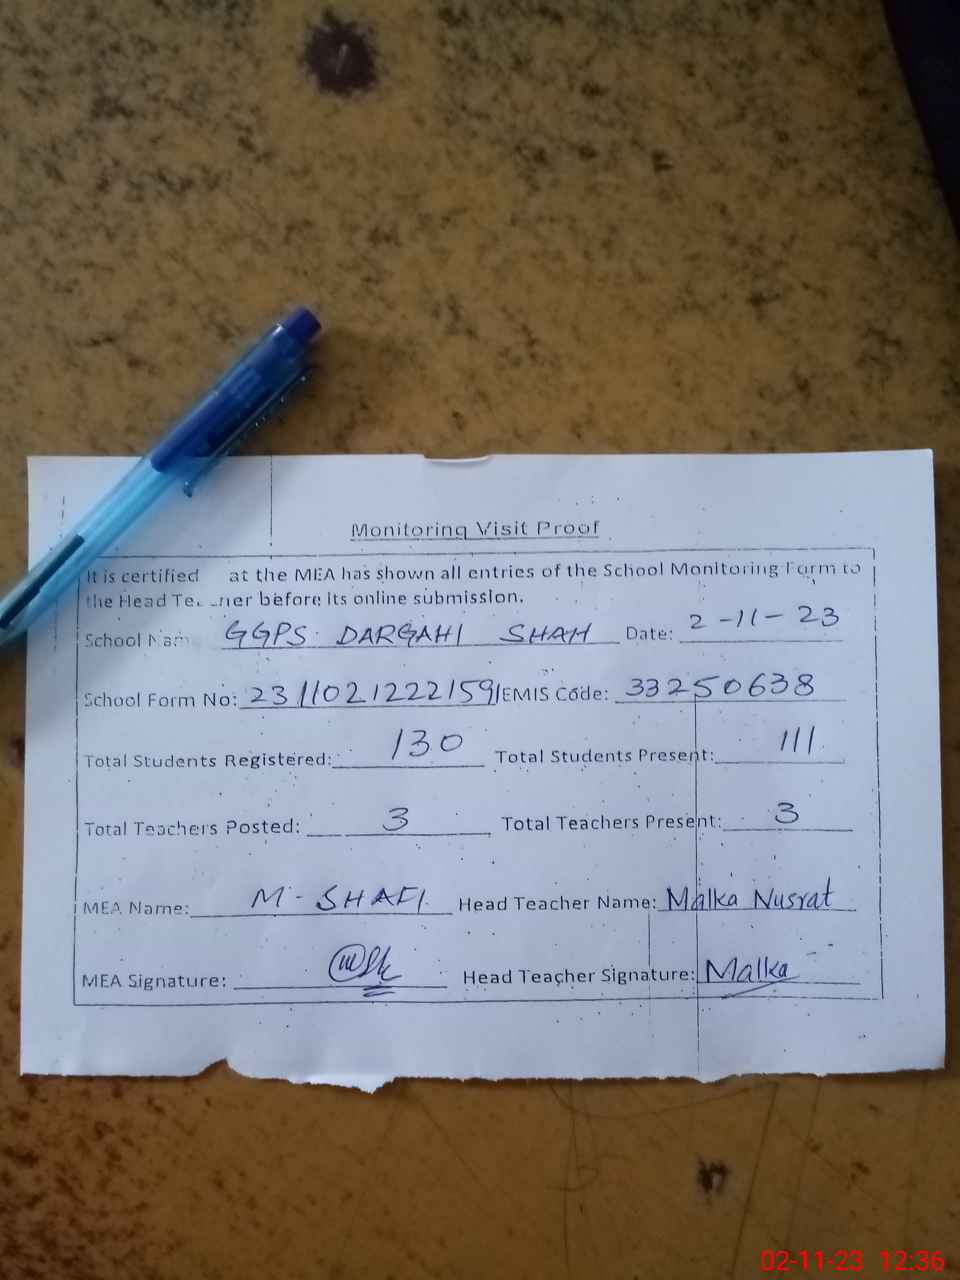 Monitoring Visit Proof
It is certified at the MEA has shown all entries of the School Monitoring Form to
the Head Te ner before its online submission.
School Nam GGPS DARGAHI SHAH Date: 2-11-23
School Form No: 231102122159 EMIS Code: 33250638
Total Students Registered: 130 Total Students Present: 111
Total Teachers Posted: 3 Total Teachers Present: 3
MEA Name: M-SHAFI Head Teacher Name: Malka Nusrat
MEA Signature: Head Teacher Signature: Malka
02-11-23 12:36